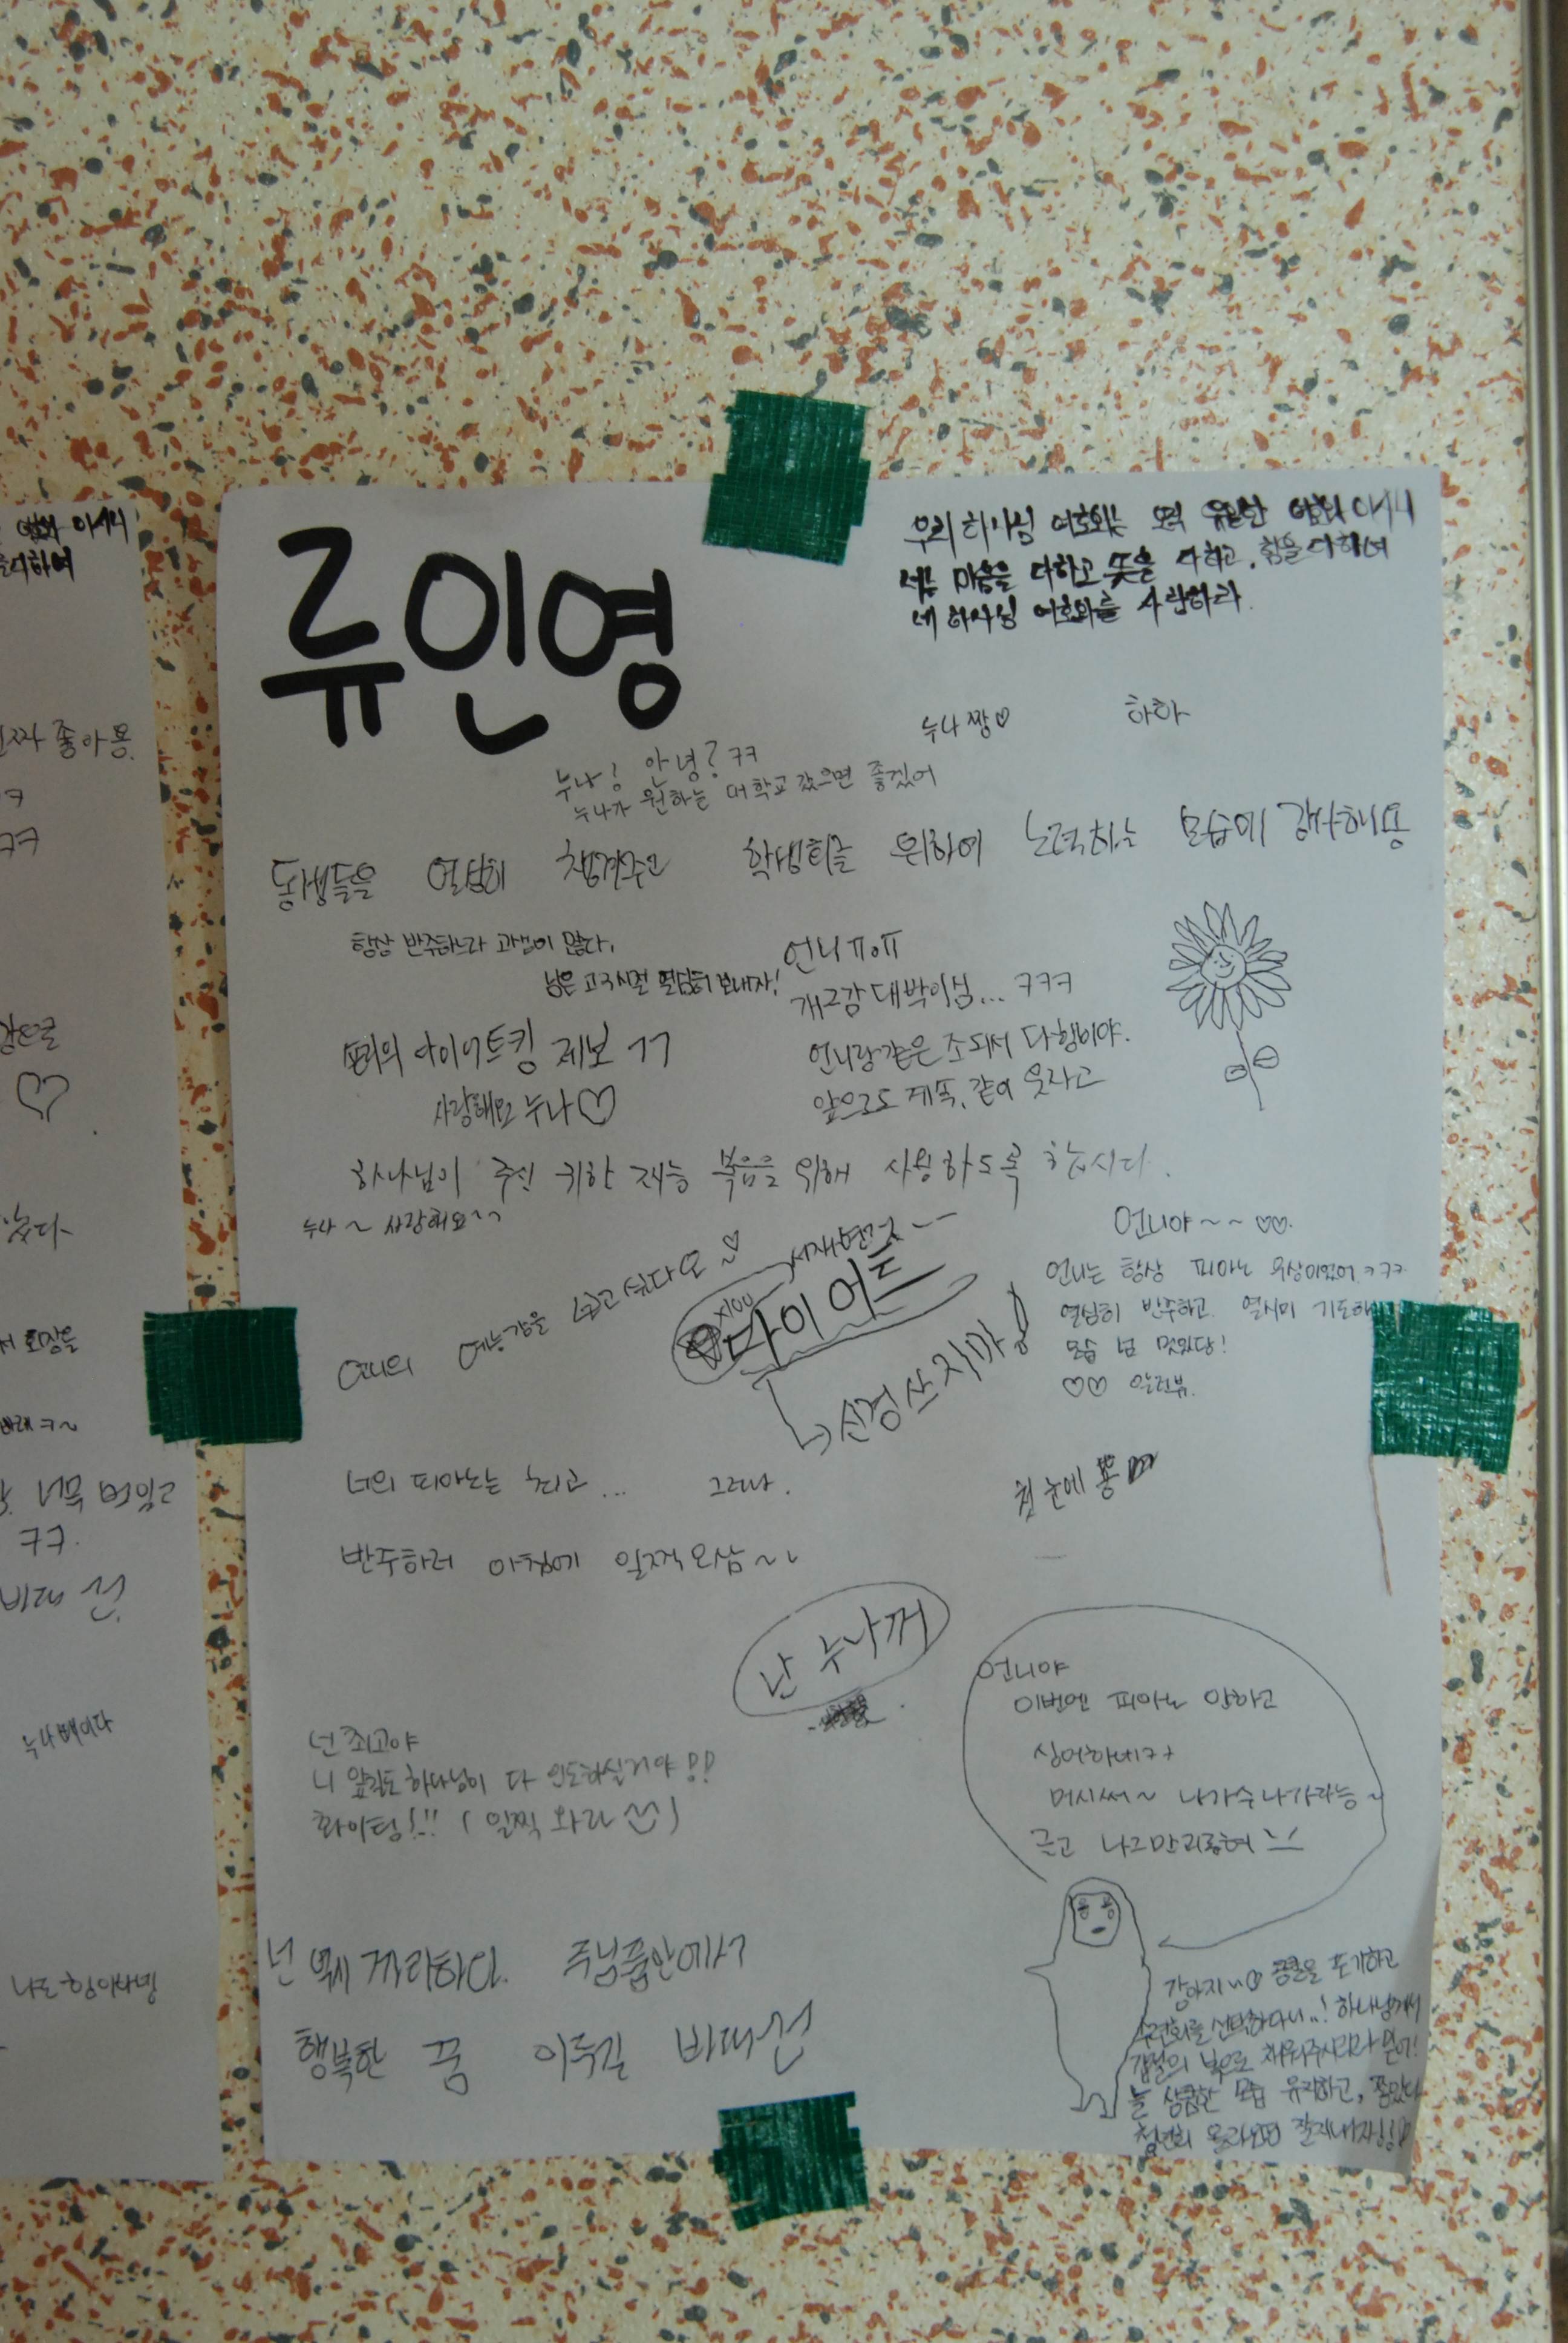 류인영
우리 하나님 여호와는 오직 유일한 여호와이시니
너는 마음을 다하고 뜻을 다하고, 힘을 다하여
네 하나님 여호와를 사랑하라.
누나짱♡
하하
누나! 안녕? ㅋㅋ
누나가 원하는 대학교 갔으면 좋겠어
동생들을 열심히 챙겨주고 학생회를 위하여 노력하는 모습이 감사해용
항상 반주하느라 고생이 많다,
남은 고3시절 열심히 보내자!
언니ㅠㅇㅠ
개그감 대박이심... ㅋㅋㅋ
언니랑 같은 조 되서 다행이야.
앞으로도 계속, 같이 웃자고
다이어트킹 제보 ㄱㄱ
사랑해요 누나♡
하나님이 주신 귀한 재능 복음을 위해 사용하도록 합시다.
누나~ 사랑해요~~
언니의 예능감을 닮고 싶다오 ♡
다이어트
신경쓰지마!
언니야~~ ♡♡.
언니는 항상 피아노 우상이었어 ㅋㅋㅋ
열심히 반주하고 열심히 기도하
모습 넘 멋있당!
♡♡ 알러뷰.
너의 피아노는 최고... 그러나.
반주하러 아침에 일찍 오삼~~
첫눈에 뿅
난 누나꺼
언니야
이번엔 피아노 안하고
싱어하네ㅋㅋ
머시써~ 나가수 나가라능~
넌 최고야
니 앞길도 하나님이 다 인도하실거야!!
화이팅!!! (일찍 와라)
넌 역시 주님품안에서
행복한 꿈 이루길 바래
강아지 ♡ 공연을 포기하고
수련회를 선택하다니..! 하나님께서
갑절의 복으로 채워주시리라 믿어!
늘 상큼한 모습 유지하고,
청년회 올라오면 잘지내자!!
진짜 좋아용.
ㅋㅋ
ㅋㅋ.
누나빼이다